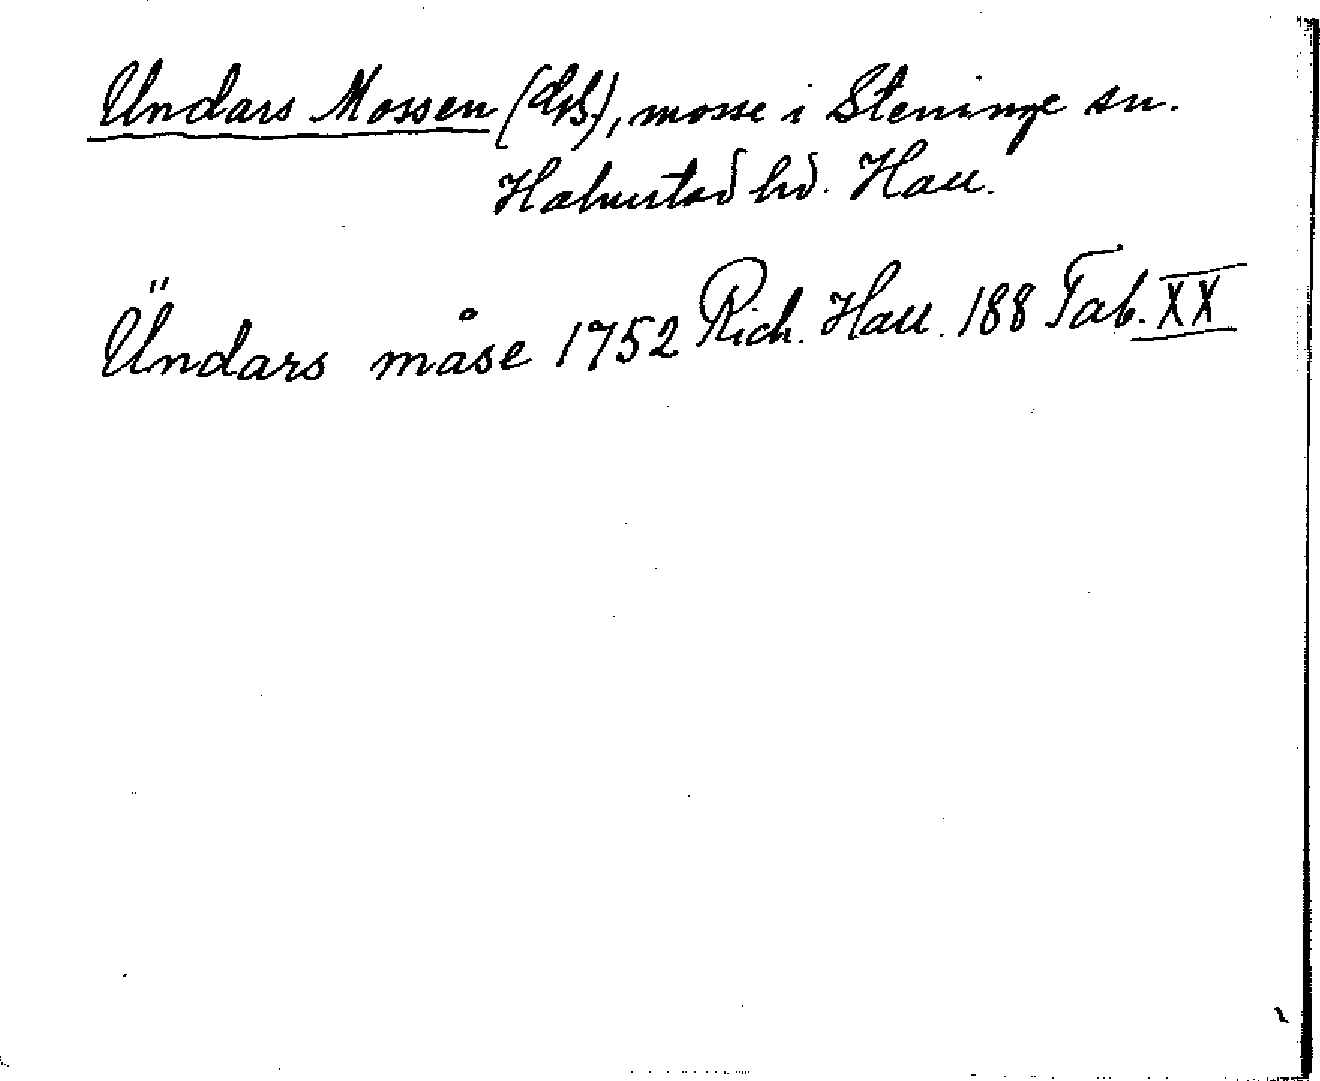 Undars Mossen (GS), mosse i Steninge sn.
Halmstad hd. Hall.
Ündars måse 1752 Rich. Hall. 188 Tab. XX